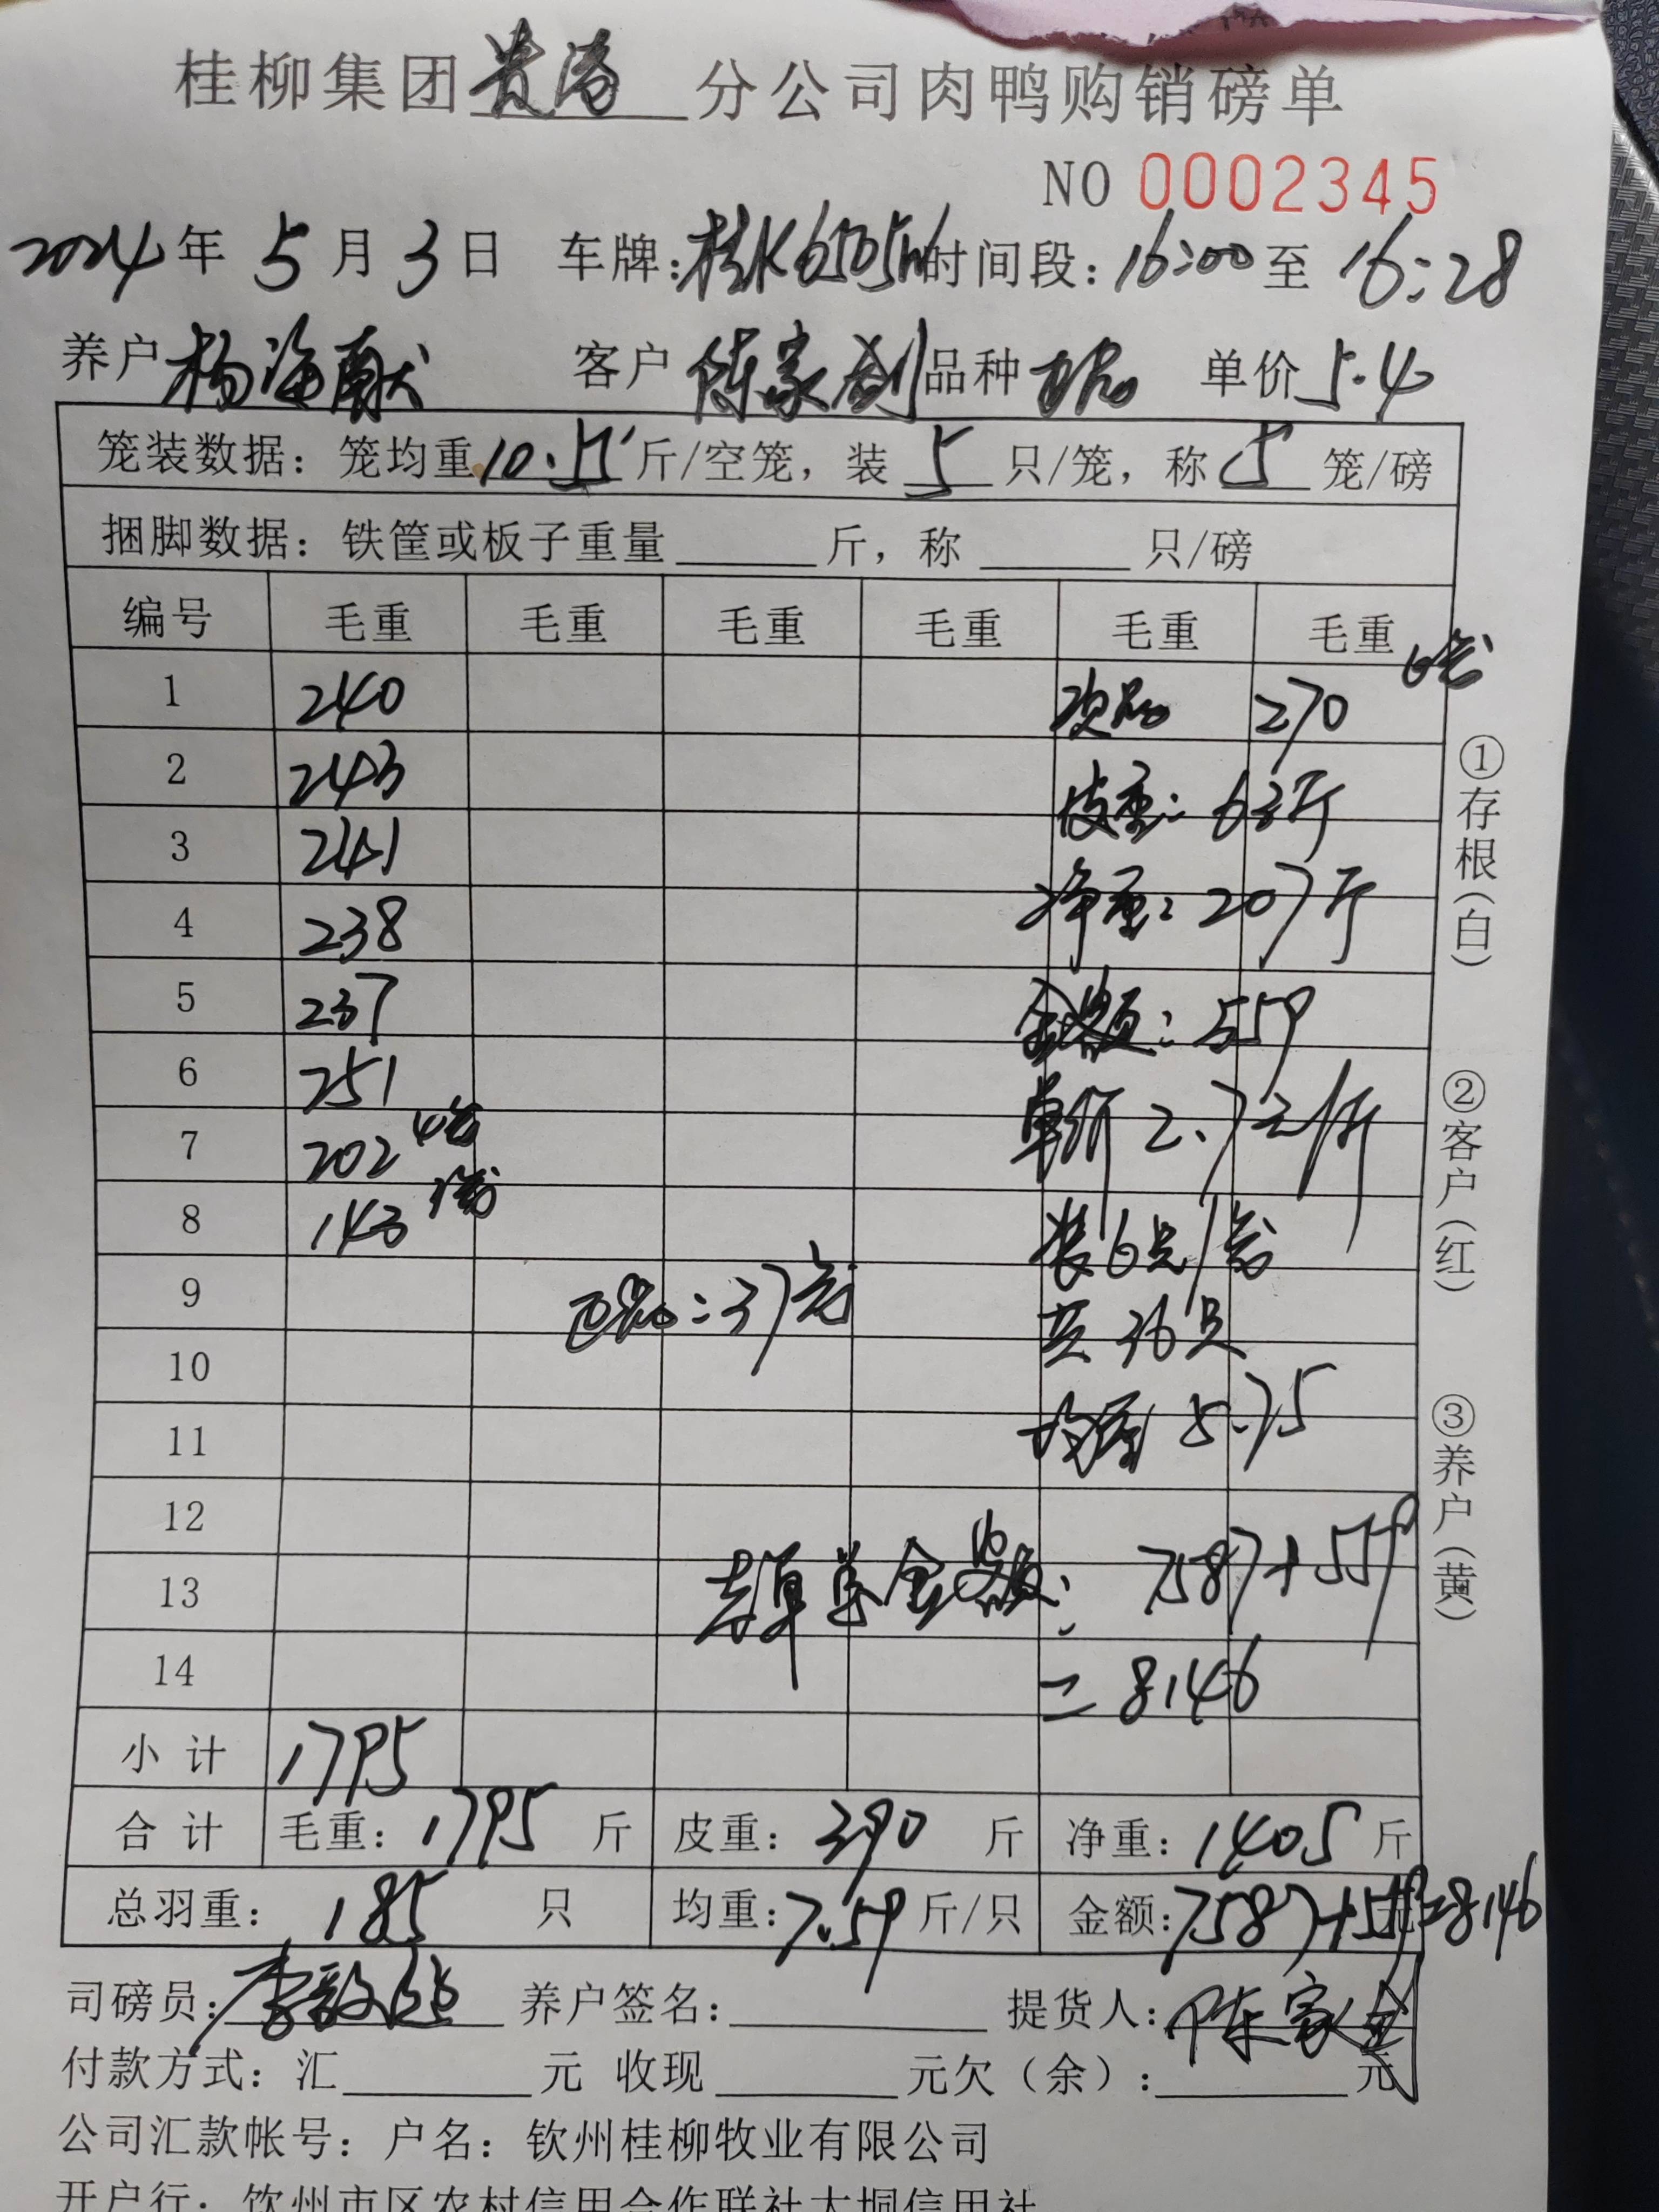 桂柳集团贵港分公司肉鸭购销磅单
NO 0002345
2024年5月3日 车牌:桂K6505 时间段:16:00至16:28
养户 杨海献 客户 陈家剑 品种 单价5.4
笼装数据: 笼均重10.55斤/空笼, 装5只/笼, 称5笼/磅
捆脚数据: 铁筐或板子重量 斤, 称 只/磅
编号 毛重 毛重 毛重 毛重 毛重 毛重 6笼
1 240 次品 270
2 243 皮重:63斤
3 241 净重:207斤
4 238
5 237 金额:559
6 251 单价2.7元/斤
7 202 4笼
8 143 3笼 装6只/笼
9 :37笼 共36只
10
11 均重5.75
12
13 本单总金额:7587+559
14 =8146
小计 1795
合计 毛重:1795斤 皮重:390斤 净重:1405斤
总羽重:185只 均重:7.59斤/只 金额:7587+559元=8146
司磅员:李 养户签名: 提货人:陈家
付款方式:汇 元 收现 元欠(余): 元
公司汇款帐号: 户名: 钦州桂柳牧业有限公司
开户行: 钦州市区农村信用合作联社大垌信用社
①存根(白)
②客户(红)
③养户(黄)